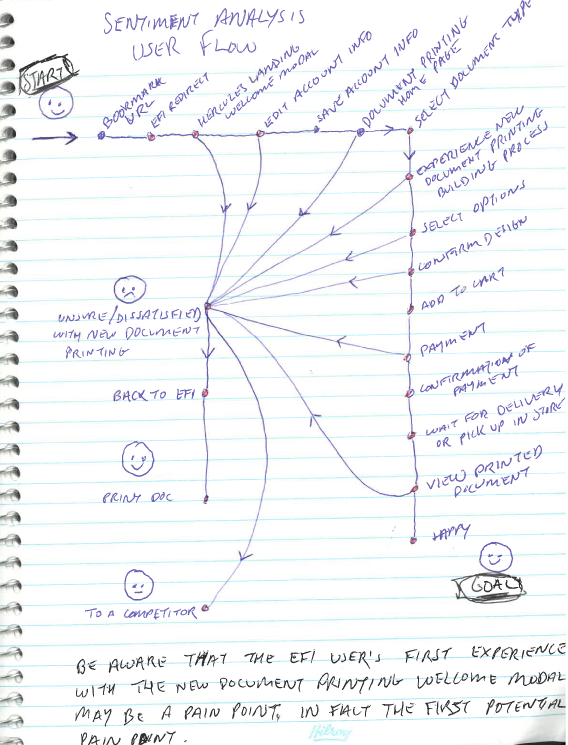 SENTIMENT ANALYSIS
USER FLOW
START!
BOOKMARK
URL
EFI REDIRECT
HERCULES LANDING
WELCOME MODAL
EDIT ACCOUNT INFO
SAVE ACCOUNT INFO
DOCUMENT PRINTING
HOME PAGE
SELECT DOCUMENT TYPE
EXPERIENCE NEW
DOCUMENT PRINTING
BUILDING PROCESS
SELECT OPTIONS
CONFIRM DESIGN
ADD TO CART
PAYMENT
CONFIRMATION OF
PAYMENT
WAIT FOR DELIVERY
OR PICK UP IN STORE
VIEW PRINTED
DOCUMENT
HAPPY
GOAL
UNSURE/DISSATISFIED
WITH NEW DOCUMENT
PRINTING
BACK TO EFI
PRINT DOC
TO A COMPETITOR
BE AWARE THAT THE EFI USER'S FIRST EXPERIENCE
WITH THE NEW DOCUMENT PRINTING WELCOME MODAL
MAY BE A PAIN POINT, IN FACT THE FIRST POTENTIAL
PAIN POINT.
Hilroy